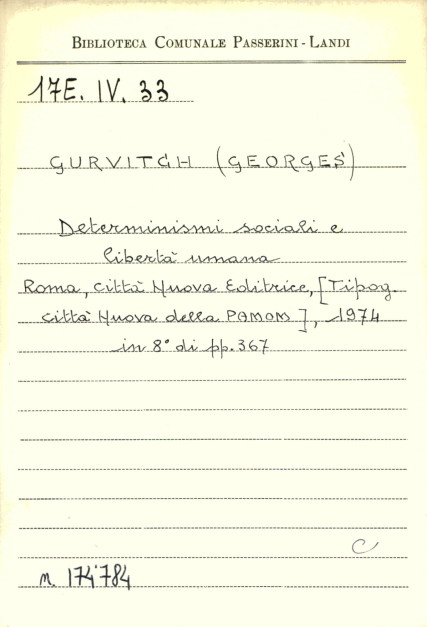 BIBLIOTECA COMUNALE PASSERINI - LANDI
17E. IV. 33
GURVITCH (GEORGES)
Determinismi sociali e
libertà umana
Roma, Città Nuova Editrice, [Tipog.
città Nuova della PAMOM], 1974
in 8° di pp. 367
C
n. 174'784